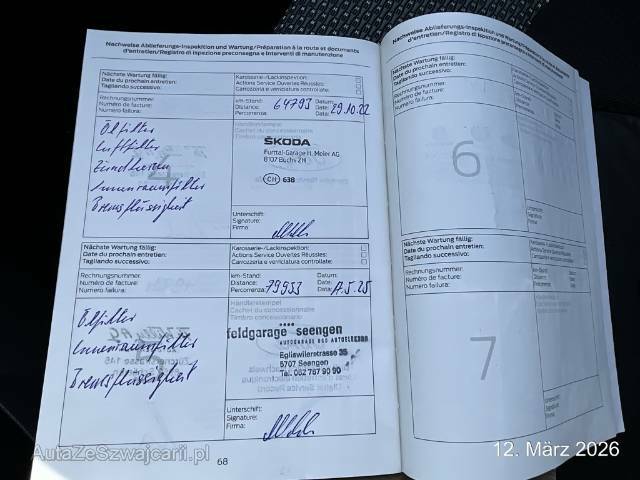 Nachweise Ablieferungs-Inspektion und Wartung/Préparation à la route et documents
d'entretien/Registro di ispezione preconsegna e interventi di manutenzione
Nächste Wartung fällig:
Date du prochain entretien:
Tagliando successivo:
Karosserie-/Lackinspektion:
Actions Service Ouvertes Réussies:
Carrozzeria e verniciatura controllate:
Rechnungsnummer:
Numéro de facture:
Numero fattura:
km-Stand:
Distance:
Percorrenza:
64793
Datum:
Date:
Data:
29.10.22
Ölfilter
Luftfilter
Zündkerzen
Innenraumfilter
Bremsflüssigkeit
Händlerstempel
Cachet du concessionnaire
Timbro concessionario
ŠKODA
Furttal-Garage H. Meier AG
8107 Buchs ZH
CH 638
Unterschrift:
Signature:
Firma:
Nächste Wartung fällig:
Date du prochain entretien:
Tagliando successivo:
Karosserie-/Lackinspektion:
Actions Service Ouvertes Réussies:
Carrozzeria e verniciatura controllate:
Rechnungsnummer:
Numéro de facture:
Numero fattura:
km-Stand:
Distance:
Percorrenza:
79933
Datum:
Date:
Data:
Ölfilter
Innenraumfilter
Bremsflüssigkeit
Händlerstempel
Cachet du concessionnaire
Timbro concessionario
feldgarage seengen
AUTOGARAGE DES AUTOGEWERBES
Egliswilerstrasse 35
5707 Seengen
Tel. 062 767 90 90
Unterschrift:
Signature:
Firma:
68
Nachweise Ablieferungs-Inspektion und Wartung
d'entretien/Registro di ispezione preconsegna e
Nächste Wartung fällig:
Date du prochain entretien:
Tagliando successivo:
Rechnungsnummer:
Numéro de facture:
Numero fattura:
6
Nächste Wartung fällig:
Date du prochain entretien:
Tagliando successivo:
Rechnungsnummer:
Numéro de facture:
Numero fattura:
7
AutaZeSzwajcarii.pl
12. März 2026